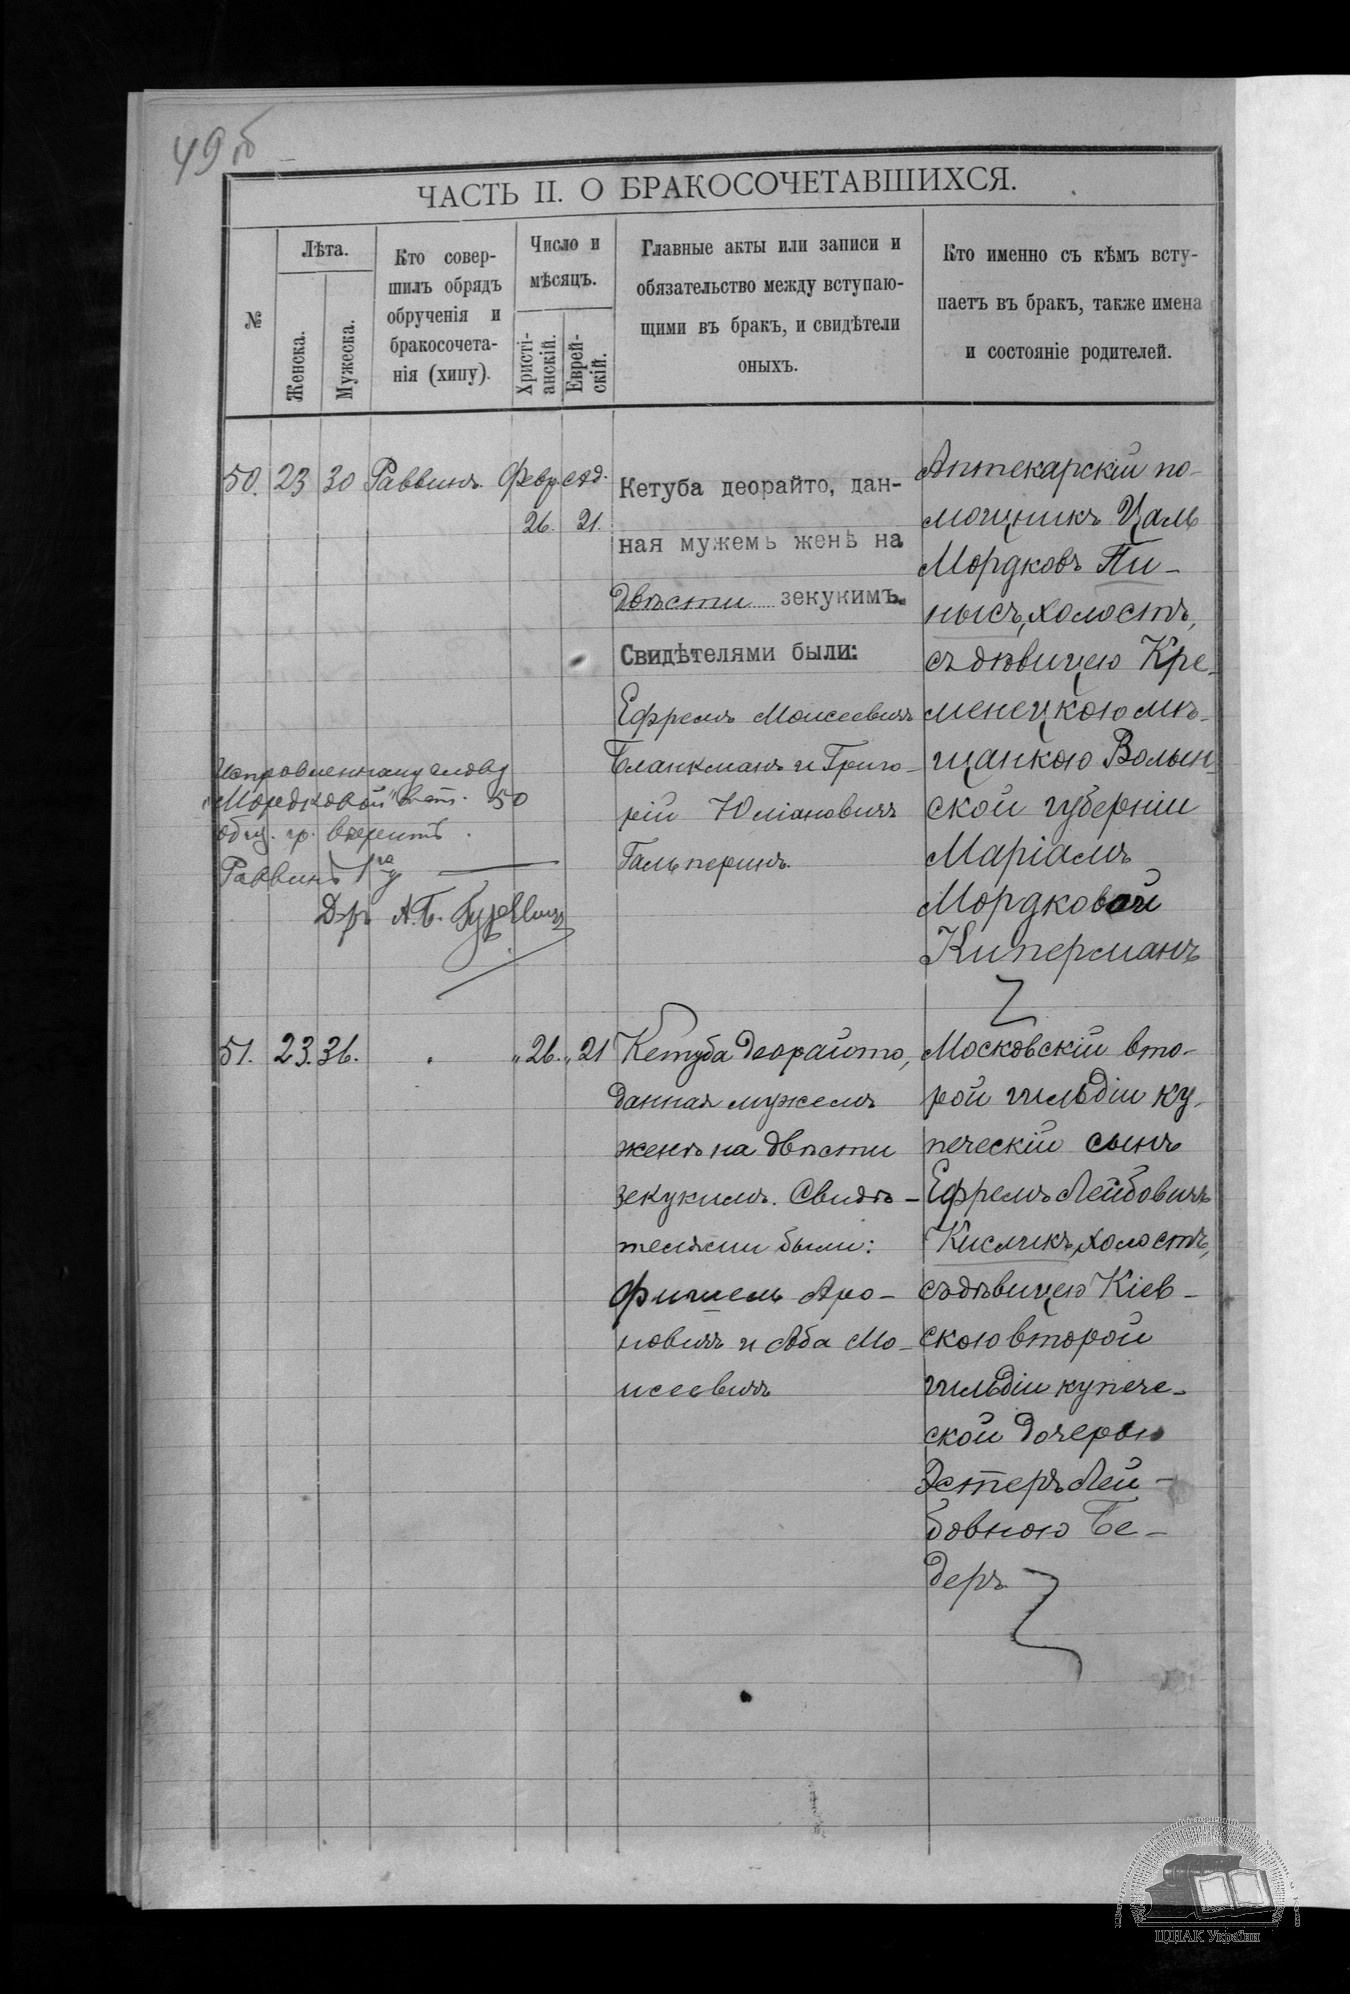 49б
ЧАСТЬ II. О БРАКОСОЧЕТАВШИХСЯ.
№
Лѣта.
Женска.
Мужеска.
Кто совер-
шилъ обрядъ
обрученія и
бракосочета-
нія (хипу).
Число и
мѣсяцъ.
Христі-
анскій.
Еврей-
скій.
Главные акты или записи и
обязательство между вступаю-
щими въ бракъ, и свидѣтели
оныхъ.
Кто именно съ кѣмъ всту-
паетъ въ брак, также имена
и состояніе родителей.
50. 23 30 Раввинъ. Февр. Ад.
26. 21.
Кетуба деорайто, дан-
ная мужемъ женѣ на
двѣсти зекукимъ.
Свидѣтелями были:
Ефремъ Моисеевичъ
Бланкманъ и Григо-
рій Юліановичъ
Гальперинъ.
Аптекарскій по-
мощникъ Цаль
Мордковъ Пи-
нысъ, холостъ,
съ дѣвицею Кре-
менецкою мѣ-
щанкою Волын-
ской губерніи
Маріамъ
Мордковой
Киперманъ
Исправленному слову
"Мордковой" въ ст. 50
общ. гр. вѣрить.
Раввинъ
Д-ръ А.Б. Гуревичъ
51. 23. 36. " 26. " 21
Кетуба деорайто,
данная мужемъ
женѣ на двѣсти
зекукимъ. Свидѣ-
телями были:
Фишель Аро-
новичъ и Аба Мо-
исеевичъ
Московскій вто-
рой гильдіи ку-
печескій сынъ
Ефремъ Лейбовичъ
Кисликъ, холостъ,
съ дѣвицею Кіев-
скою второй
гильдіи купече-
ской дочерью
Эстеръ Лей-
бовною Бе-
деръ
ЦДІАК України